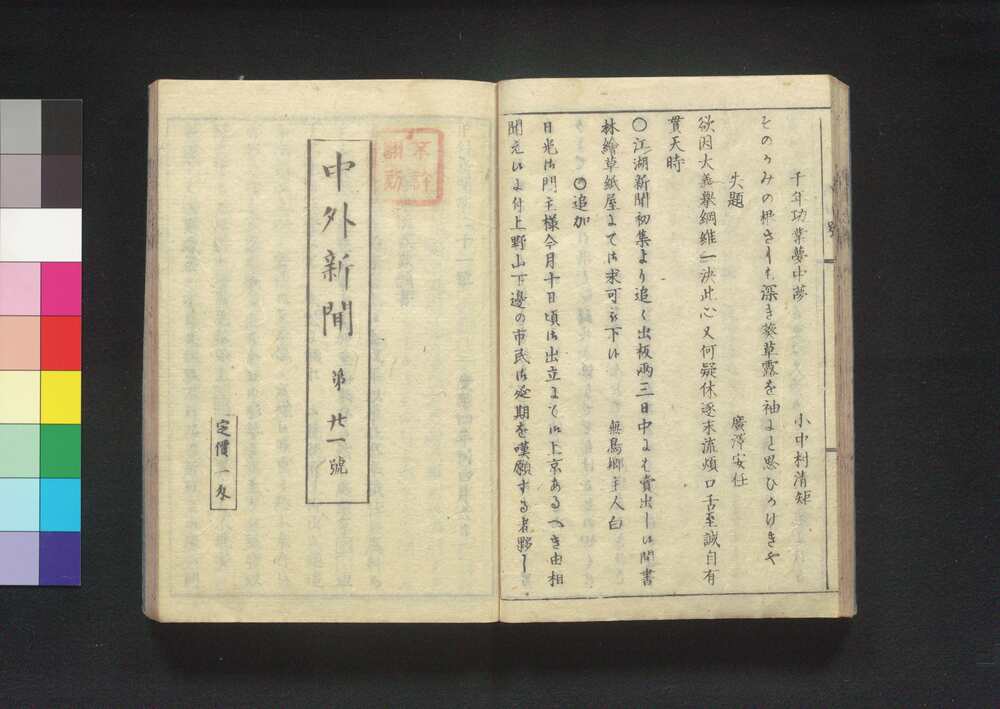 千年功業夢中夢
小中村清矩
そのかみの根さしも深き葵草露を袖にと思ひかけきや
失題
廣澤安任
欲因大義擧綱維一決此心又何疑休逐末流煩口舌至誠自有
貫天時
〇江湖新聞初集より追〻出板両三日中にも賣出し候間書
林繪草紙屋にて御求可被下候
無鳥郷主人白
〇追加
日光御門主様今月十日頃御出立にて御上京あるべき由相
聞え候に付上野山下邊の市民御延期を嘆願する者夥し
中外新聞
第廿一號
定價一匁